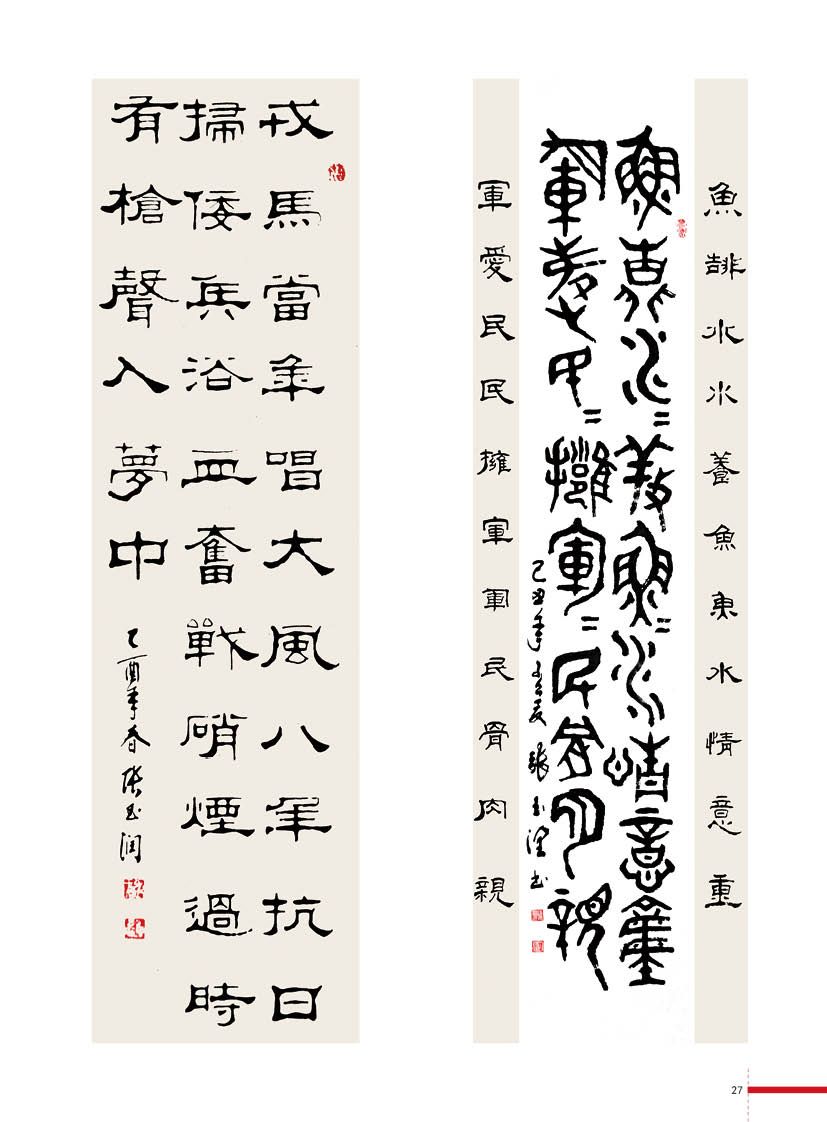 魚靠水水養魚魚水情意重
魚靠水=養魚=水情意重
軍愛民=擁軍=民骨肉親
己丑年 夏 張玉潤書
軍愛民民擁軍軍民骨肉親
戎馬當年唱大風八年抗日
掃倭兵浴血奮戰硝煙過時
有槍聲入夢中
乙酉年春張玉潤
27